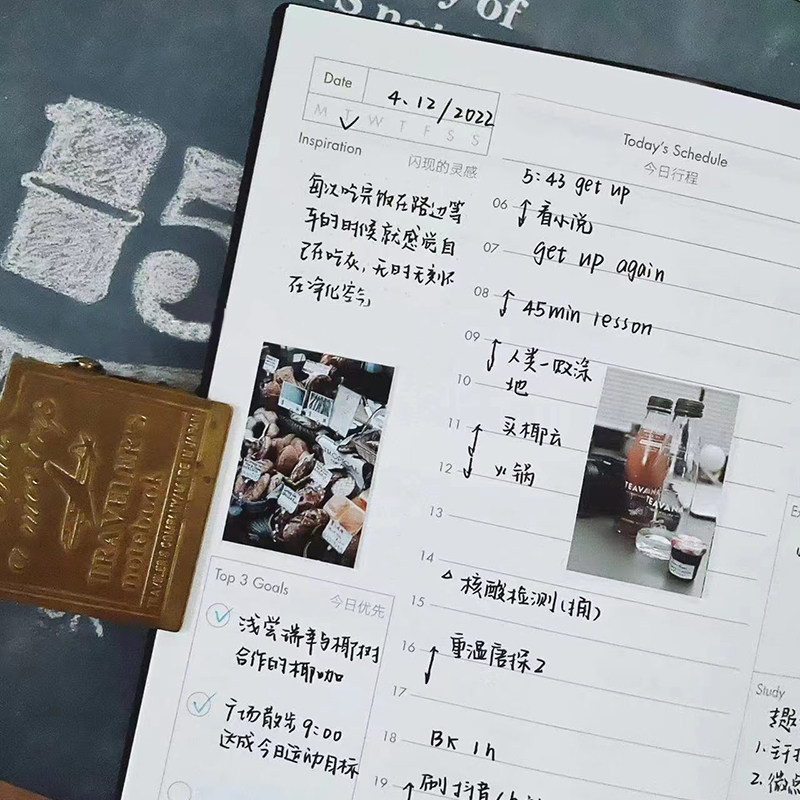 y of
Date
4.12/2022
M T W T F S S
Inspiration
闪现的灵感
每次吃完饭在路边等
车的时候就感觉自
己在吃灰，无时无刻不
在净化空气
Today's Schedule
今日行程
5:43 get up
06 看小说
07 get up again
08 45min lesson
09 人类一败涂
10 地
11 买椰云
12 火锅
13
14
△ 核酸检测(捅)
15
16 重温唐探2
17
18 BK 1h
19 刷抖音/
TEAVANA
TEAVANA
Top 3 Goals
今日优先
浅尝瑞幸与椰树
合作的椰咖
广场散步9:00
达成今日运动目标
Study
1.
2.微点
15
TRAVELER'S
notebook
TRAVELER'S COMPANY MADE IN JAPAN